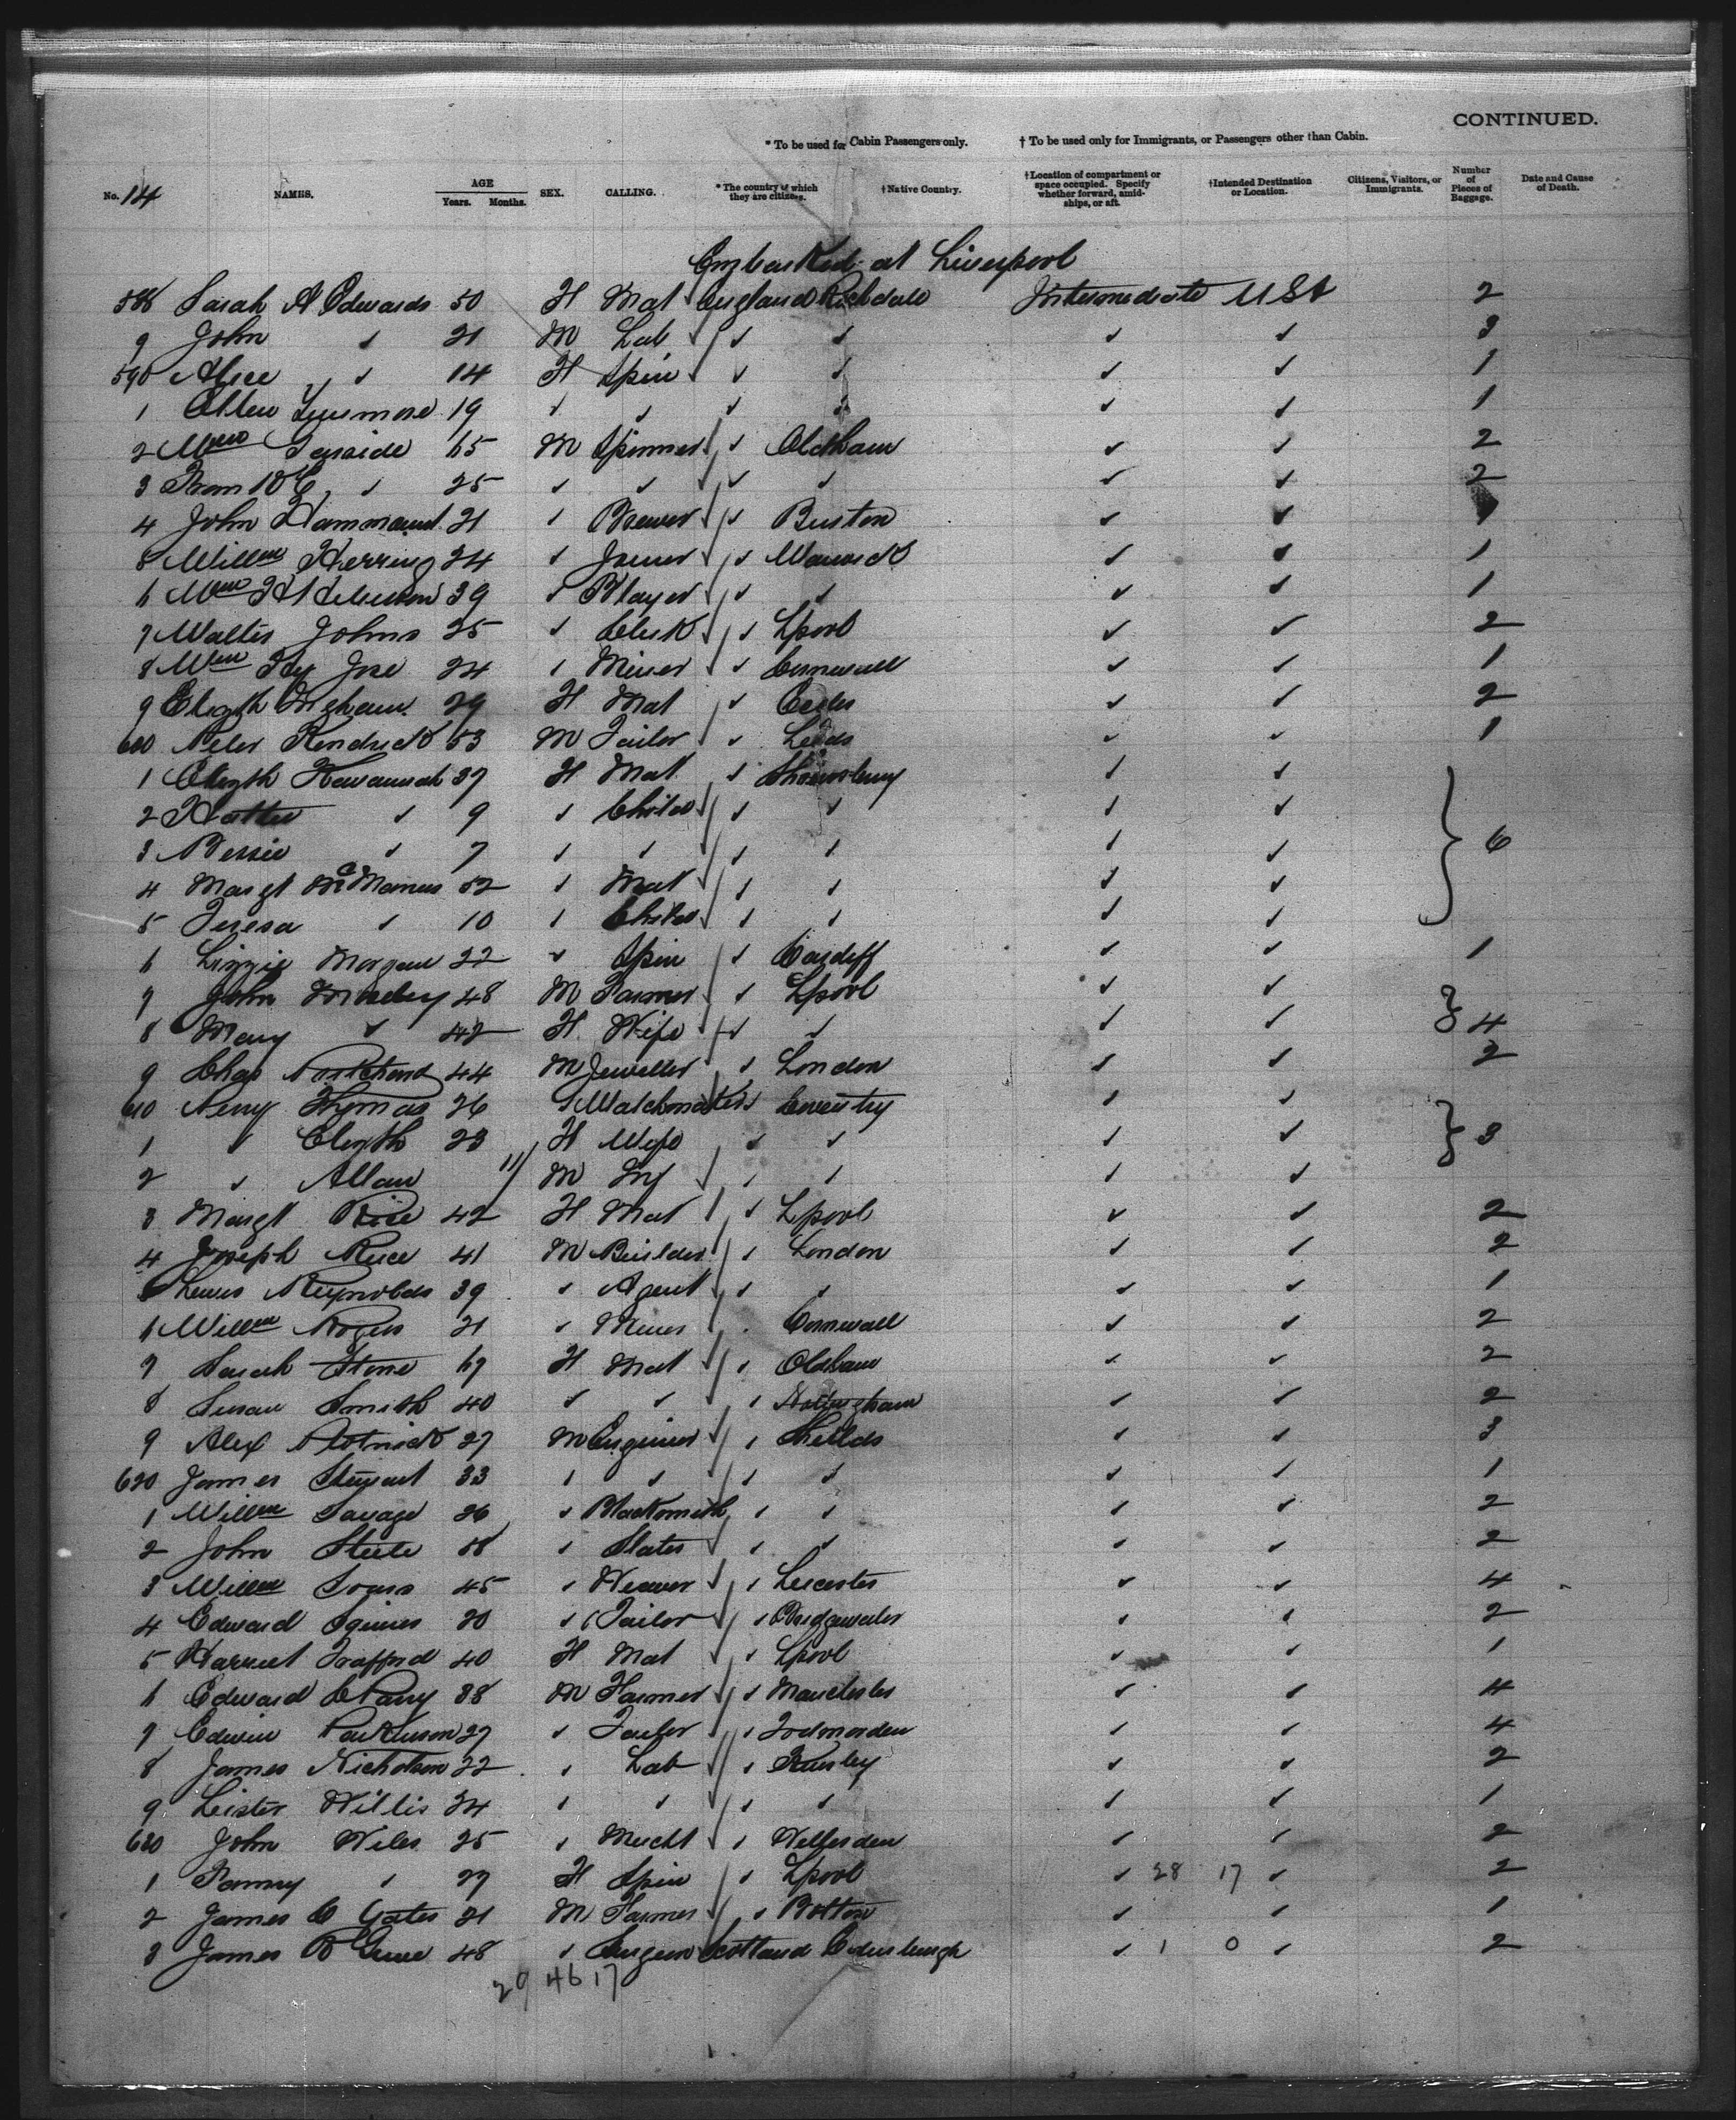 CONTINUED.
* To be used for Cabin Passengers only. † To be used only for Immigrants, or Passengers other than Cabin.
No. 14 NAMES. AGE Years. Months. SEX. CALLING. * The country of which they are citizens. † Native Country. † Location of compartment or space occupied. Specify whether forward, amidships, or aft. † Intended Destination or Location. Citizens, Visitors, or Immigrants. Number of Pieces of Baggage. Date and Cause of Death.
Embarked at Liverpool
588 Sarah A Edwards 50 F Mat England Rochdale Intermediate USA 2
9 John ✓ 21 M Lab ✓ ✓ ✓ ✓ 3
590 Alice ✓ 14 F Spin ✓ ✓ ✓ ✓ 1
1 Ellen 19 ✓ ✓ ✓ ✓ ✓ ✓ 1
2 Wm 65 M Spinner ✓ Oldham ✓ ✓ 2
3 ✓ 25 ✓ ✓ ✓ ✓ ✓ ✓ 2
4 John Hammand 21 ✓ Brewer ✓ Burton ✓ ✓ 1
5 Willm Herring 24 ✓ Joiner ✓ Warwick ✓ ✓ 1
6 Wm 39 ✓ Player ✓ ✓ ✓ ✓ 1
7 Walter Johns 25 ✓ Clerk ✓ Lpool ✓ ✓ 2
8 Wm Hy Jose 24 ✓ Miner ✓ Cornwall ✓ ✓ 1
9 Elizth 29 F Mat ✓ Eccles ✓ ✓ 2
600 Peter Kendrick 53 M Tailor ✓ Leeds ✓ ✓ 1
1 Elizth Kavannah 37 F Mat ✓ Shrewsbury ✓ ✓
2 Hattie ✓ 9 ✓ Child ✓ ✓ ✓ ✓
3 Bessie ✓ 7 ✓ ✓ ✓ ✓ ✓ ✓ } 6
4 Margt McManus 52 ✓ Mat ✓ ✓ ✓ ✓
5 Teresa ✓ 10 ✓ Child ✓ ✓ ✓ ✓
6 Lizzie Morgan 22 ✓ Spin ✓ Cardiff ✓ ✓ 1
7 John Moseley 48 M Farmer ✓ Lpool ✓ ✓
8 Mary ✓ 42 F Wife ✓ ✓ ✓ ✓ } 4
9 Chas Pritchard 44 M Jeweller ✓ London ✓ ✓ 2
610 Thomas 26 ✓ Watchmaker ✓ Coventry ✓ ✓
1 ✓ Elizth 23 F Wife ✓ ✓ ✓ ✓ } 3
2 ✓ Allan 11/ M Inf ✓ ✓ ✓ ✓
3 Margt Rice 42 F Mat ✓ Lpool ✓ ✓ 2
4 Joseph Rice 41 M Builder ✓ London ✓ ✓ 2
5 Lewis Reynolds 39 ✓ Agent ✓ ✓ ✓ ✓ 1
6 Willm Rogers 21 ✓ Miner Cornwall ✓ ✓ 2
7 Sarah Stone 67 F Mat ✓ Oldham ✓ ✓ 2
8 Susan Smith 40 ✓ ✓ ✓ Nottingham ✓ ✓ 2
9 Alex 27 M Engineer ✓ Shields ✓ ✓ 3
620 James Stewart 33 ✓ ✓ ✓ ✓ ✓ ✓ 1
1 Willm Savage 26 ✓ Blacksmith ✓ ✓ ✓ ✓ 2
2 John Steele 58 ✓ Slater ✓ ✓ ✓ ✓ 2
3 Willm 45 ✓ Weaver ✓ Leicester ✓ ✓ 4
4 Edward Squires 20 ✓ Tailor ✓ Bridgwater ✓ ✓ 2
5 Harriet Trafford 40 F Mat ✓ Lpool ✓ ✓ 1
6 Edward C Parry 38 M Farmer ✓ Manchester ✓ ✓ 4
7 Edwin Parkinson 27 ✓ Tailor ✓ Todmorden ✓ ✓ 4
8 James Nicholson 22 ✓ Lab ✓ ✓ ✓ 2
9 Lister Willis 24 ✓ ✓ ✓ ✓ ✓ ✓ 1
630 John Wiles 25 ✓ Mercht ✓ Willesden ✓ ✓ 2
1 Fanny ✓ 27 F Spin ✓ Lpool ✓ 28 17 ✓ 2
2 James C Yates 21 M Farmer ✓ Bolton ✓ ✓ 1
3 James B 48 ✓ Surgeon Scotland Edinburgh ✓ 1 0 ✓ 2
29 46 17